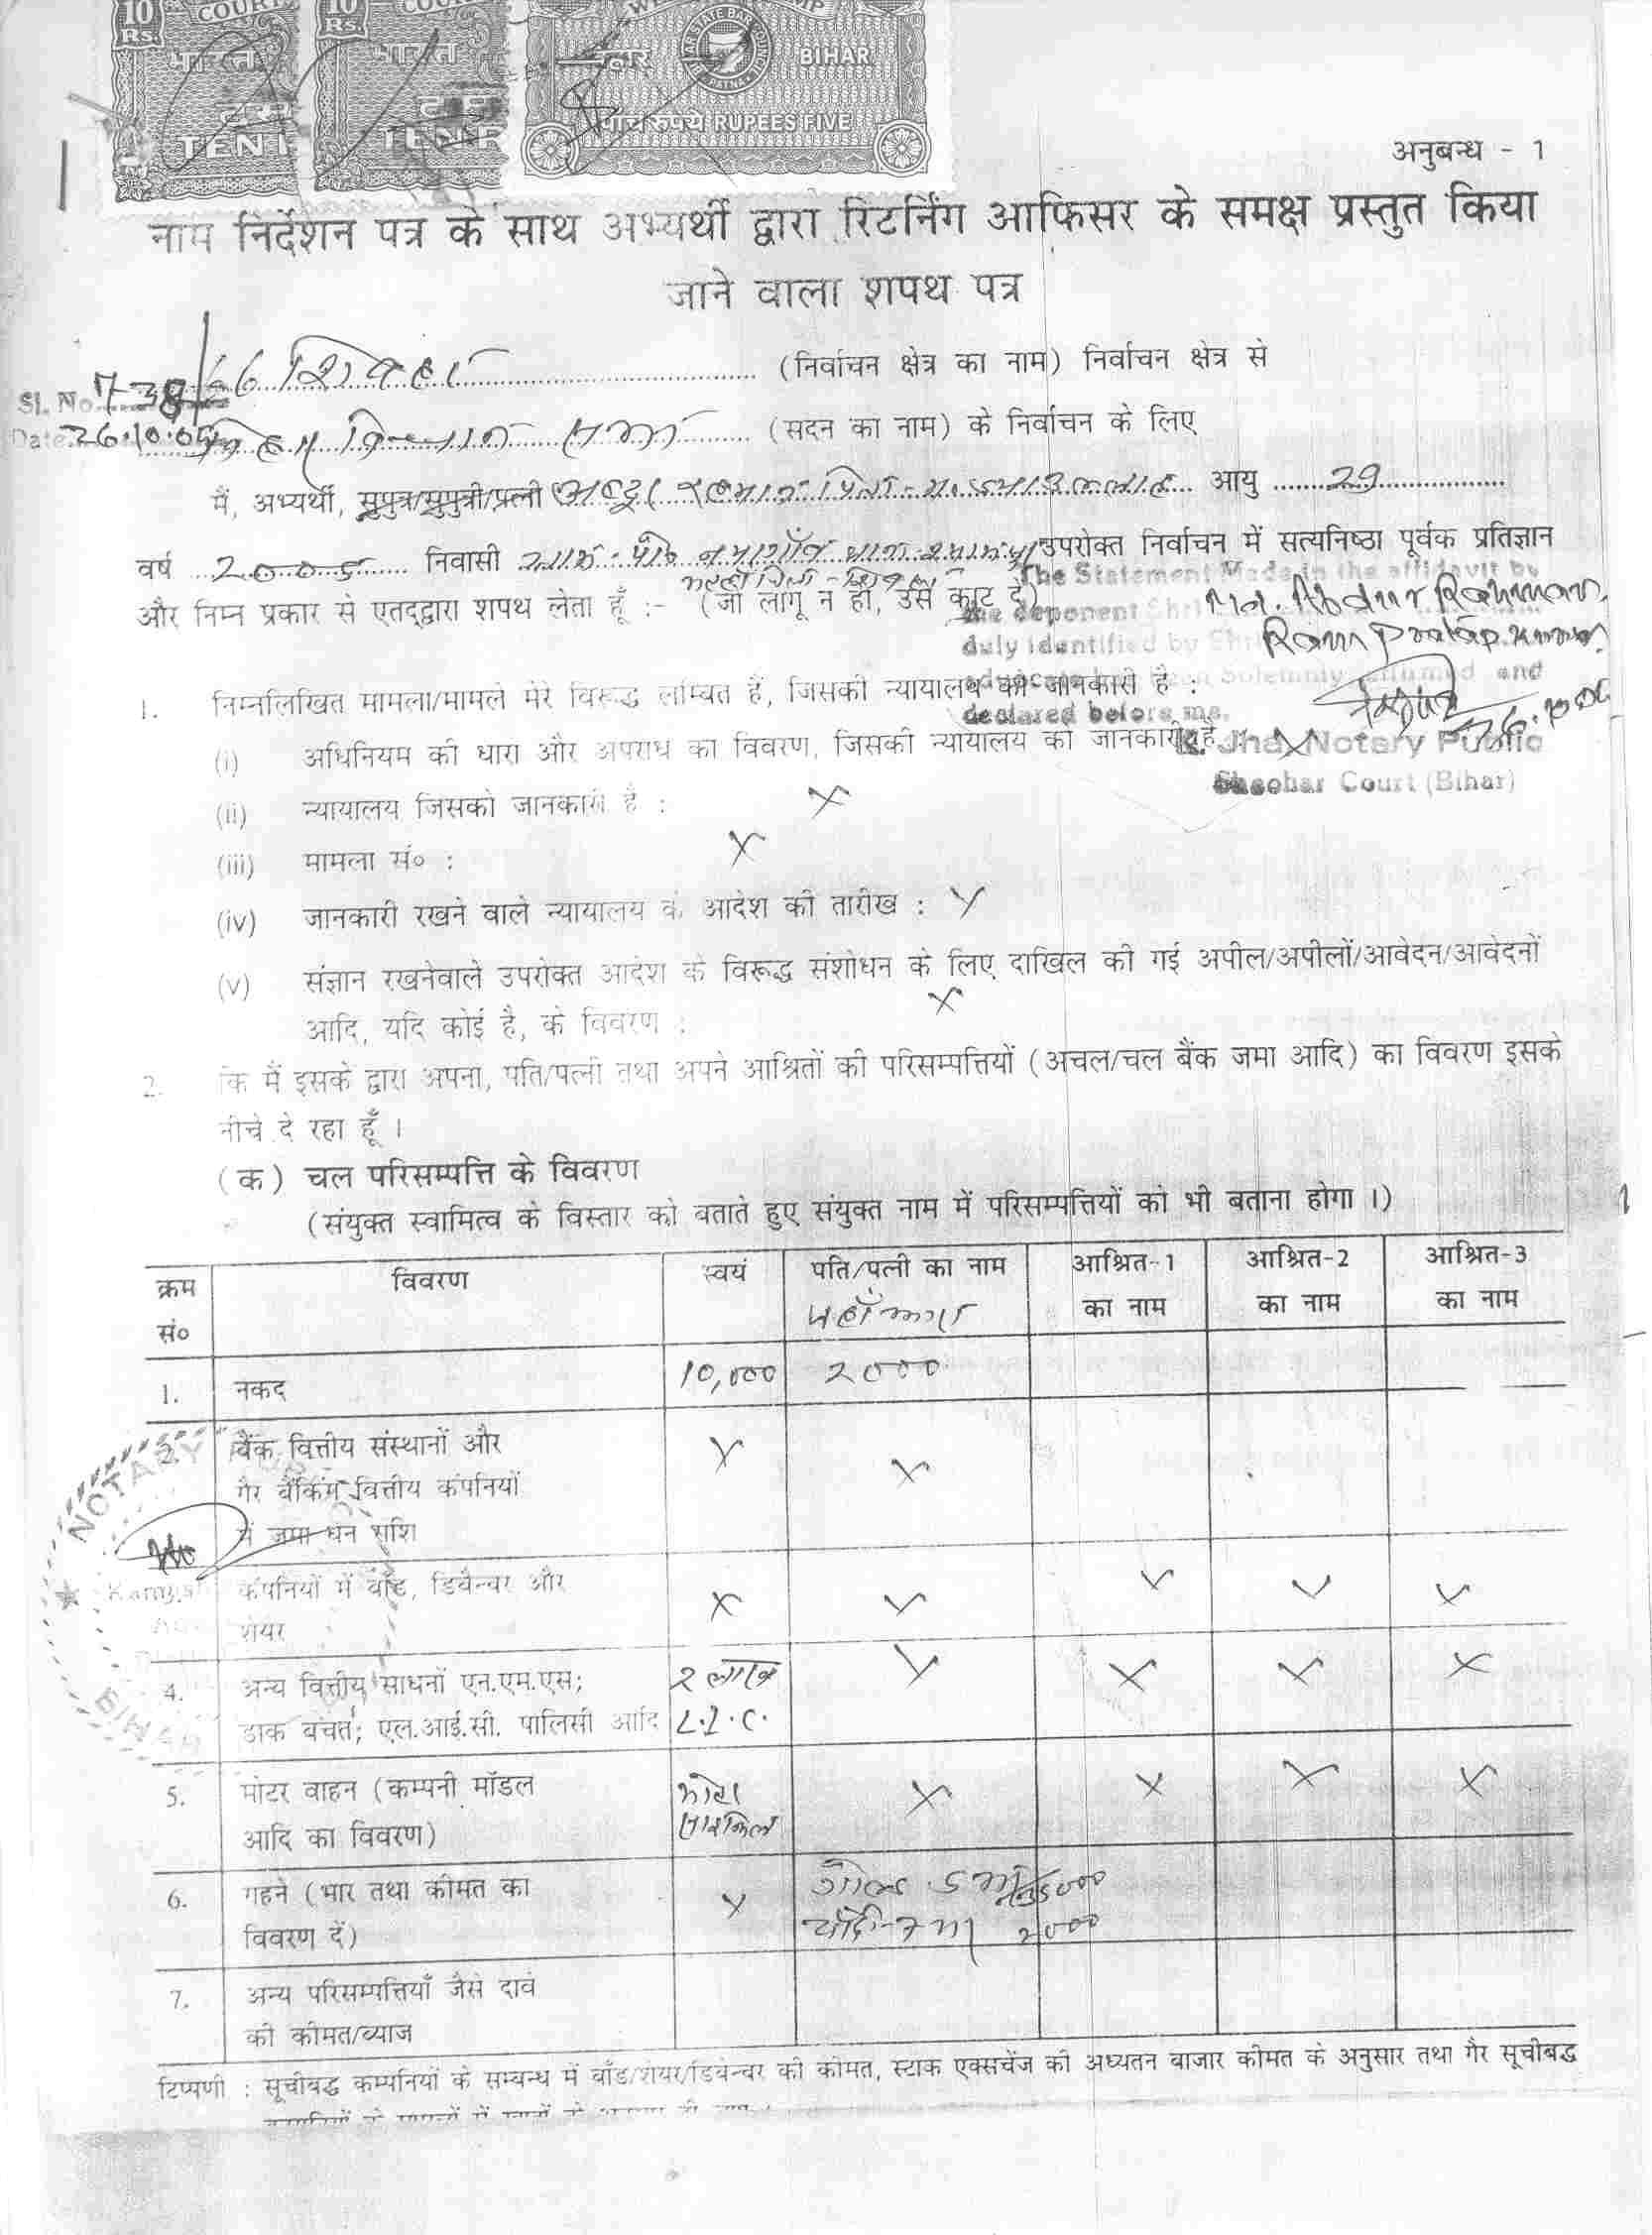 10 COURT
Rs.
भारत
TEN
10
Rs.
भारत
TEN R
BIHAR STATE BAR COUNCIL PATNA
BIHAR
पाँच रुपये RUPEES FIVE
अनुबन्ध - 1
नाम निर्देशन पत्र के साथ अभ्यर्थी द्वारा रिटर्निंग आफिसर के समक्ष प्रस्तुत किया
जाने वाला शपथ पत्र
(निर्वाचन क्षेत्र का नाम) निर्वाचन क्षेत्र से
Sl. No.
Date. 26.10.05 (सदन का नाम) के निर्वाचन के लिए
मैं, अभ्यर्थी, सुपुत्र/सुपुत्री/पत्नी आयु 29
वर्ष 2005 निवासी उपरोक्त निर्वाचन में सत्यनिष्ठा पूर्वक प्रतिज्ञान
और निम्न प्रकार से एतद्द्वारा शपथ लेता हूँ :- (जो लागू न हो, उसे काट दें)
The Statement Made in the affidavit by
the deponent Shri Md. Abdur Rahman
duly identified by Shri Ram Pratap Kumar
advocate has been Solemnly affirmed and
declared before me.
Jha, Notary Public
Sheohar Court (Bihar)
1. निम्नलिखित मामला/मामले मेरे विरूद्ध लम्बित हैं, जिसकी न्यायालय को जानकारी है :
(i) अधिनियम की धारा और अपराध का विवरण, जिसकी न्यायालय को जानकारी है X
(ii) न्यायालय जिसको जानकारी है : X
(iii) मामला सं० : X
(iv) जानकारी रखने वाले न्यायालय के आदेश की तारीख : X
(v) संज्ञान रखनेवाले उपरोक्त आदेश के विरूद्ध संशोधन के लिए दाखिल की गई अपील/अपीलों/आवेदन/आवेदनों
आदि, यदि कोई है, के विवरण : X
2. कि मैं इसके द्वारा अपना, पति/पत्नी तथा अपने आश्रितों की परिसम्पत्तियों (अचल/चल बैंक जमा आदि) का विवरण इसके
नीचे दे रहा हूँ ।
(क) चल परिसम्पत्ति के विवरण
(संयुक्त स्वामित्व के विस्तार को बताते हुए संयुक्त नाम में परिसम्पत्तियों को भी बताना होगा ।)
क्रम विवरण स्वयं पति/पत्नी का नाम आश्रित-1 आश्रित-2 आश्रित-3
सं० का नाम का नाम का नाम
1. नकद 10,000 2000
2. बैंक वित्तीय संस्थानों और X X
गैर बैंकिंग वित्तीय कंपनियों
में जमा धन राशि
कंपनियों में बाँड, डिबैन्चर और X X X X X
शेयर
4. अन्य वित्तीय साधनों एन.एम.एस; 2 लाख X X X X
डाक बचत; एल.आई.सी. पालिसी आदि L.I.C.
5. मोटर वाहन (कम्पनी मॉडल मोटर X X X X
आदि का विवरण) साइकिल
6. गहने (भार तथा कीमत का X गोल्ड 5000
विवरण दें) चाँदी 2000
7. अन्य परिसम्पत्तियाँ जैसे दावे
की कीमत/ब्याज
NOTARY
BIHAR
टिप्पणी : सूचीबद्ध कम्पनियों के सम्बन्ध में बाँड/शेयर/डिबेन्चर की कीमत, स्टाक एक्सचेंज की अध्यतन बाजार कीमत के अनुसार तथा गैर सूचीबद्ध